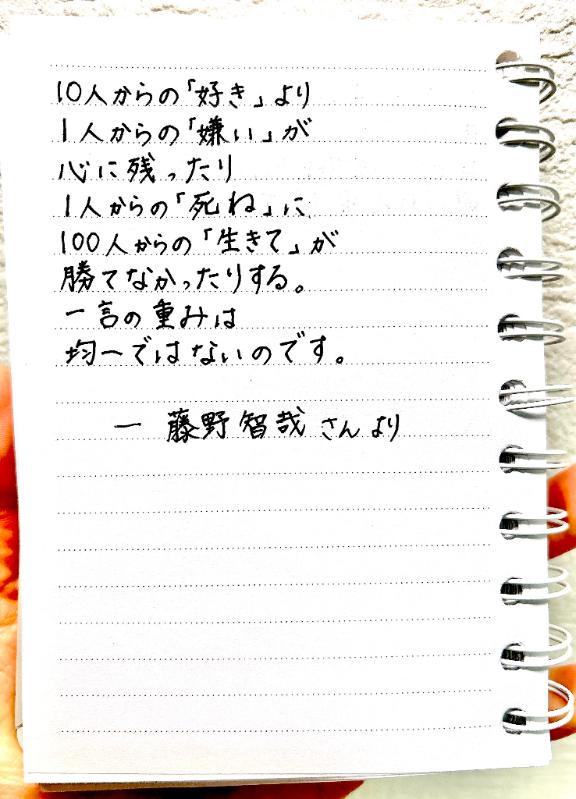 10人からの「好き」より
1人からの「嫌い」が
心に残ったり
1人からの「死ね」に
100人からの「生きて」が
勝てなかったりする。
一言の重みは
均一ではないのです。
― 藤野智哉さんより